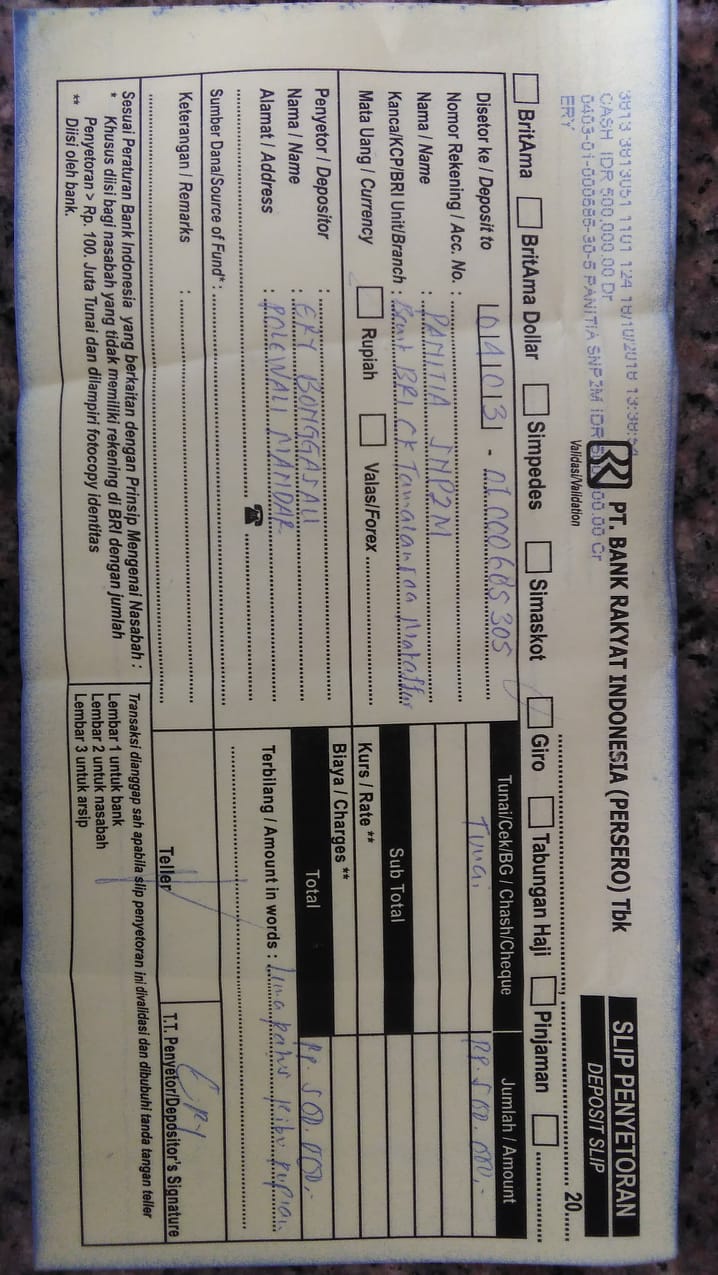 3813 3813051 1101 124 18/10/2018 13:38:
CASH IDR 500,000.00 Dr
0403-01-000685-30-5 PANITIA SNP2M IDR 500,000.00 Cr
ERY
PT. BANK RAKYAT INDONESIA (PERSERO) Tbk
Validasi/Validation
SLIP PENYETORAN
DEPOSIT SLIP
20
BritAma BritAma Dollar Simpedes Simaskot Giro Tabungan Haji Pinjaman
Disetor ke / Deposit to
Nomor Rekening / Acc. No. : 0403 - 01000685305
Nama / Name : PANITIA SNP2M
Kanca/KCP/BRI Unit/Branch : BRI CK Tamalanrea
Mata Uang / Currency Rupiah Valas/Forex
Penyetor / Depositor :
Nama / Name : ERY BONGGASAU
Alamat / Address : POLEWALI MANDAR
☎
Sumber Dana/Source of Fund* :
Keterangan / Remarks :
Tunai/Cek/BG / Chash/Cheque Jumlah / Amount
Tunai Rp. 500.000,-
Sub Total
Kurs / Rate **
Biaya / Charges **
Total Rp. 500.000,-
Terbilang / Amount in words : Lima ratus ribu rupiah
Teller
T.T. Penyetor/Depositor's Signature
ERY
Sesuai Peraturan Bank Indonesia yang berkaitan dengan Prinsip Mengenai Nasabah :
* Khusus diisi bagi nasabah yang tidak memiliki rekening di BRI dengan jumlah
Penyetoran > Rp. 100. Juta Tunai dan dilampiri fotocopy identitas
** Diisi oleh bank.
Transaksi dianggap sah apabila slip penyetoran ini divalidasi dan dibubuhi tanda tangan teller
Lembar 1 untuk bank
Lembar 2 untuk nasabah
Lembar 3 untuk arsip